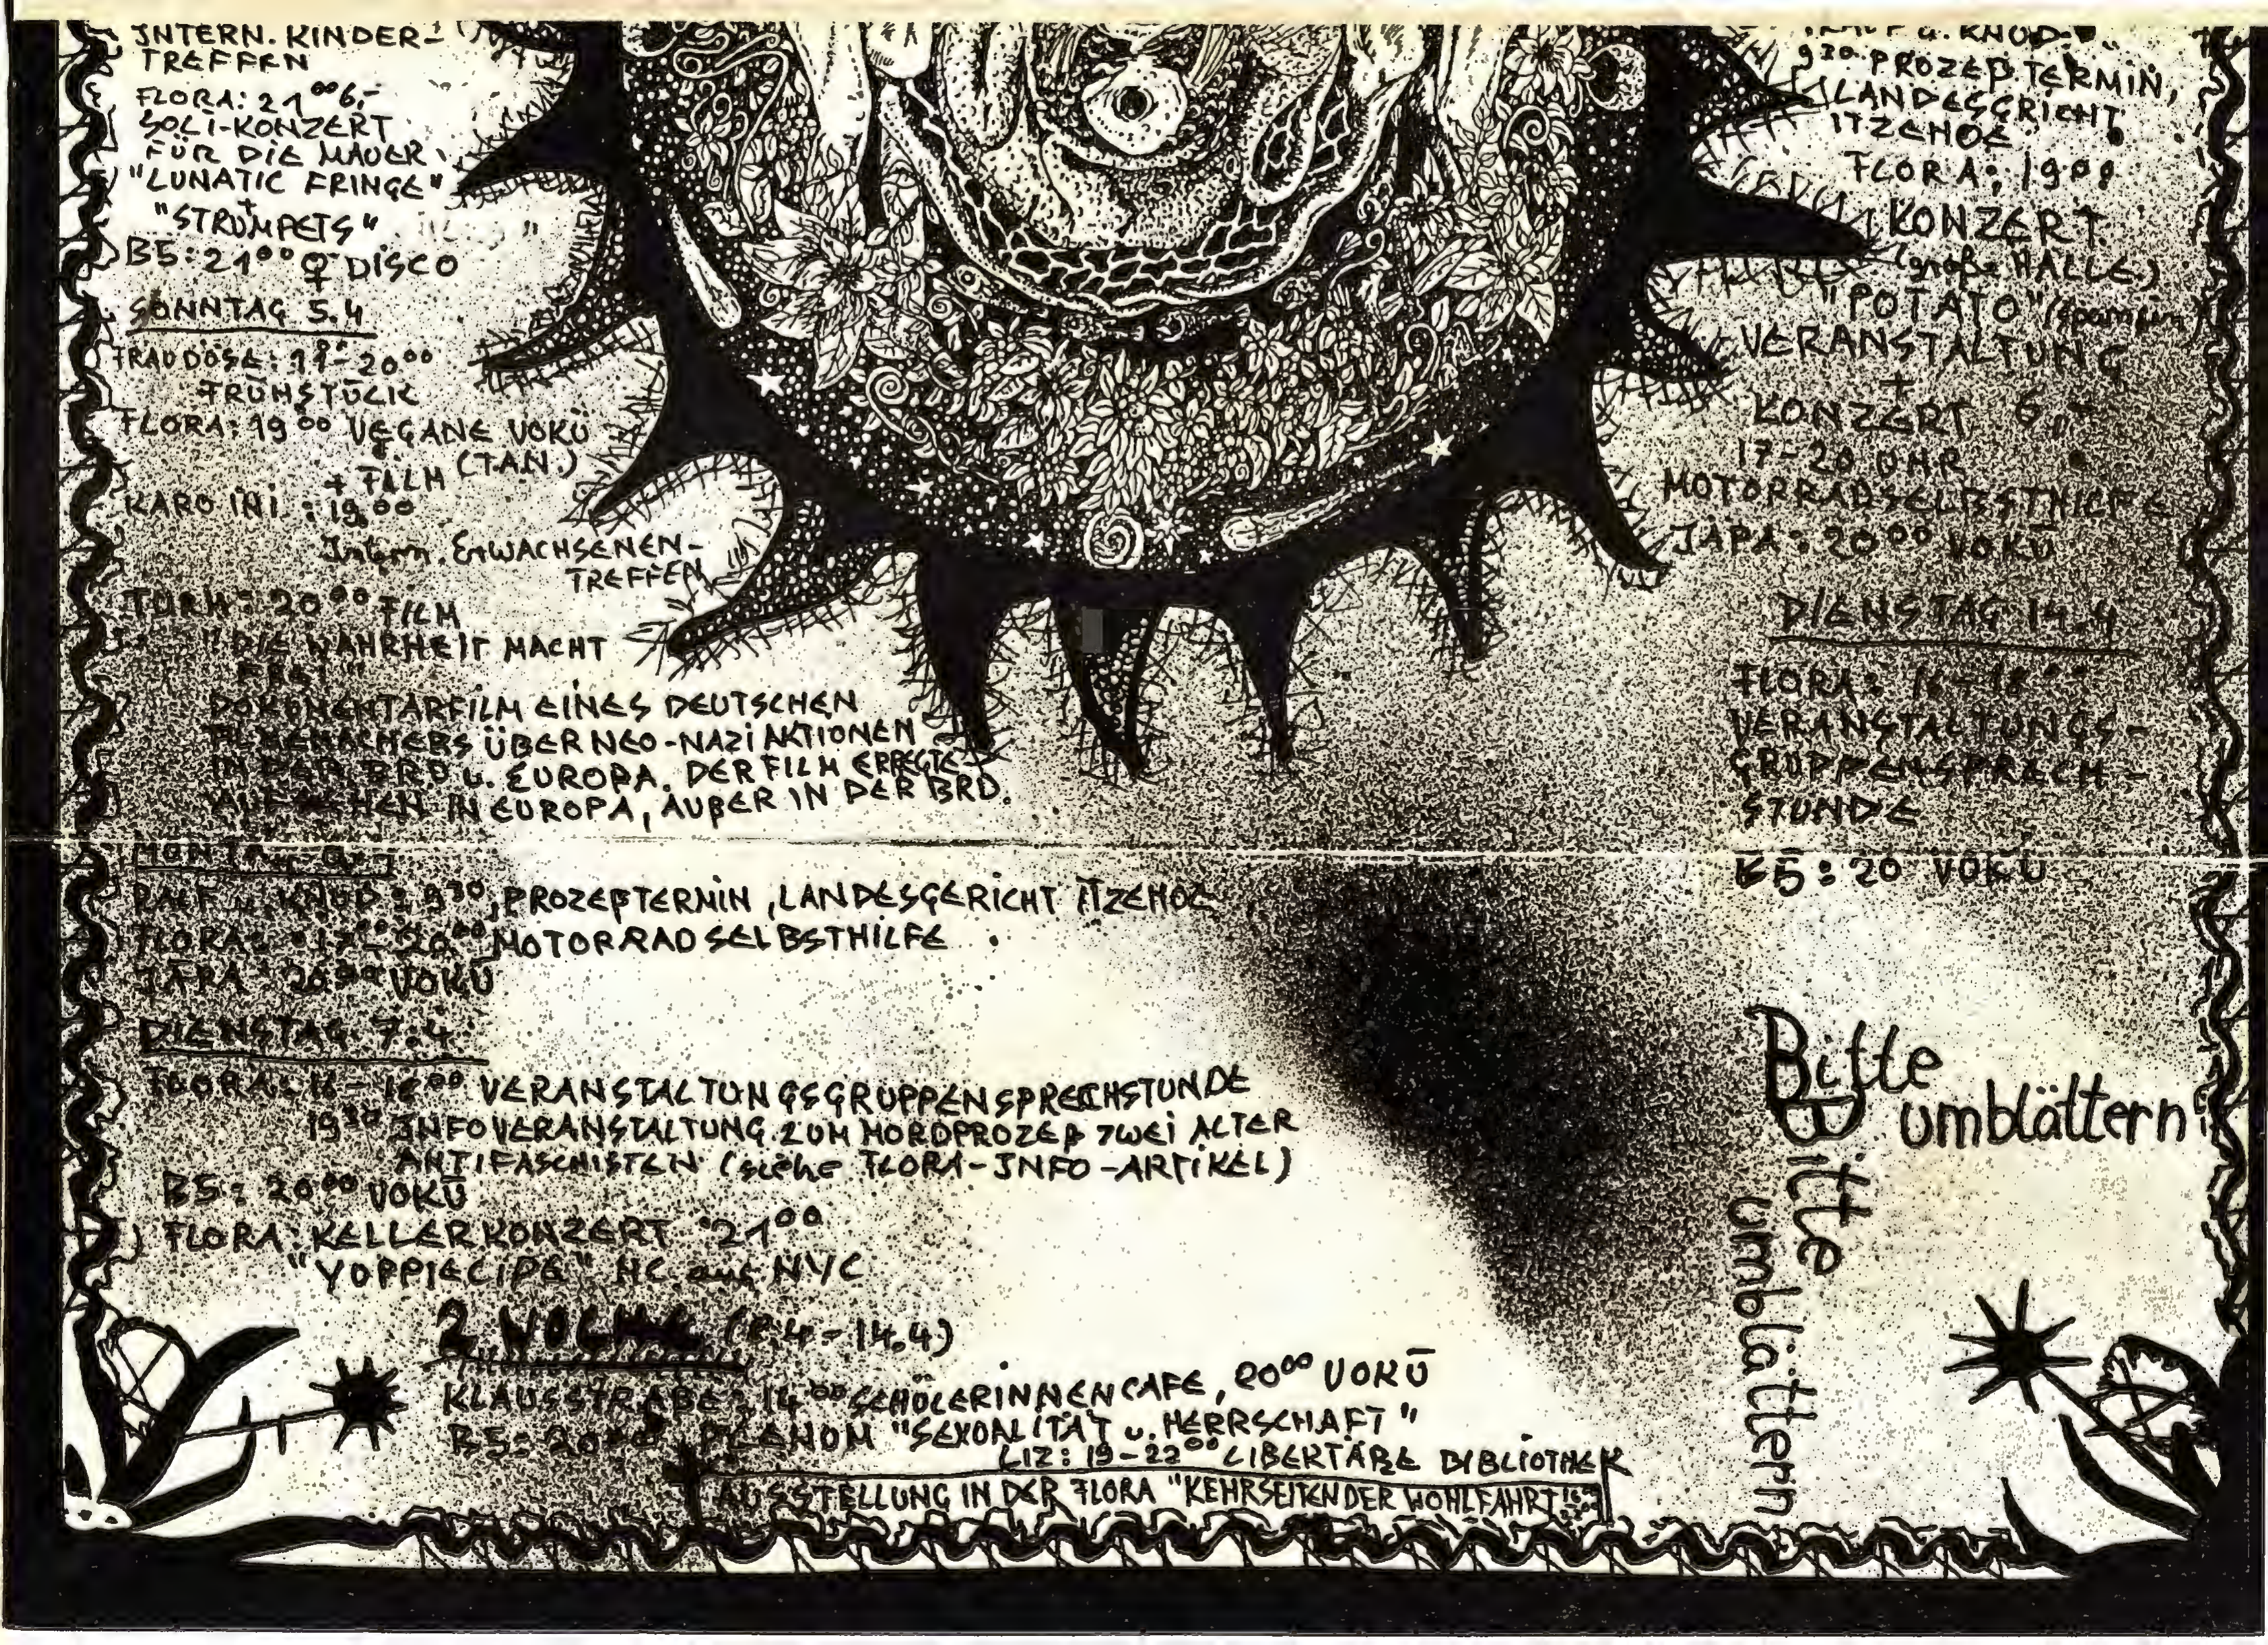 INTERN. KINDER-
TREFFEN
FLORA: 21⁰⁰ 6,-
SOLI-KONZERT
FÜR DIE MAUER
"LUNATIC FRINGE"
+
"STRUMPETS"
B5: 21⁰⁰ ♀ DISCO
SONNTAG 5.4
FRAUDÖSE: 11-20⁰⁰
FRÜHSTÜCK
FLORA: 19⁰⁰ VEGANE VOKÜ
(T.A.N.)
+ FILM
KARO INI.: 19⁰⁰
Intern. ERWACHSENEN-
TREFFEN
TURM: 20⁰⁰ FILM
"DIE WAHRHEIT MACHT
FREI"
DOKUMENTARFILM EINES DEUTSCHEN
FILMEMACHERS ÜBER NEO-NAZI AKTIONEN
IN DER BRD u. EUROPA. DER FILM ERREGTE
AUFSEHEN IN EUROPA, AUßER IN DER BRD.
MONTAG
RALF u. KNUD: 9³⁰, PROZEßTERMIN, LANDESGERICHT ITZEHOE
FLORA: 17⁰⁰-20⁰⁰ MOTORRADSELBSTHILFE
JÄPA: 20⁰⁰ VOKÜ
DIENSTAG 7.4
FLORA: 16-18⁰⁰ VERANSTALTUNGSGRUPPENSPRECHSTUNDE
19³⁰ INFOVERANSTALTUNG ZUM MORDPROZEß ZWEI ALTER
ANTIFASCHISTEN (siehe FLORA-INFO-ARTIKEL)
B5: 20⁰⁰ VOKÜ
FLORA: KELLERKONZERT 21⁰⁰
"YUPPIECIDE" HC aus NYC
2. WOCHE (8.4-14.4)
KLAUSSTRAßE: 14⁰⁰ SCHÜLERINNENCAFE, 20⁰⁰ VOKÜ
B5: 20⁰⁰ PLENUM "SEXUALITÄT u. HERRSCHAFT"
LIZ: 19-22⁰⁰ LIBERTÄRE BIBLIOTHEK
AUSSTELLUNG IN DER FLORA "KEHRSEITEN DER WOHLFAHRT"
RALF u. KNUD:
9³⁰ PROZEßTERMIN,
LANDESGERICHT
ITZEHOE
FLORA: 19⁰⁰
KONZERT
(große HALLE)
"POTATO" (spanien)
VERANSTALTUNG
+
KONZERT 6,-
17-20 UHR
MOTORRADSELBSTHILFE
JÄPA: 20⁰⁰ VOKÜ
DIENSTAG 14.4
FLORA: 16-18⁰⁰
VERANSTALTUNGS-
GRUPPENSPRECH-
STUNDE
B5: 20 VOKÜ
Bitte
umblättern
Bitte
umblättern